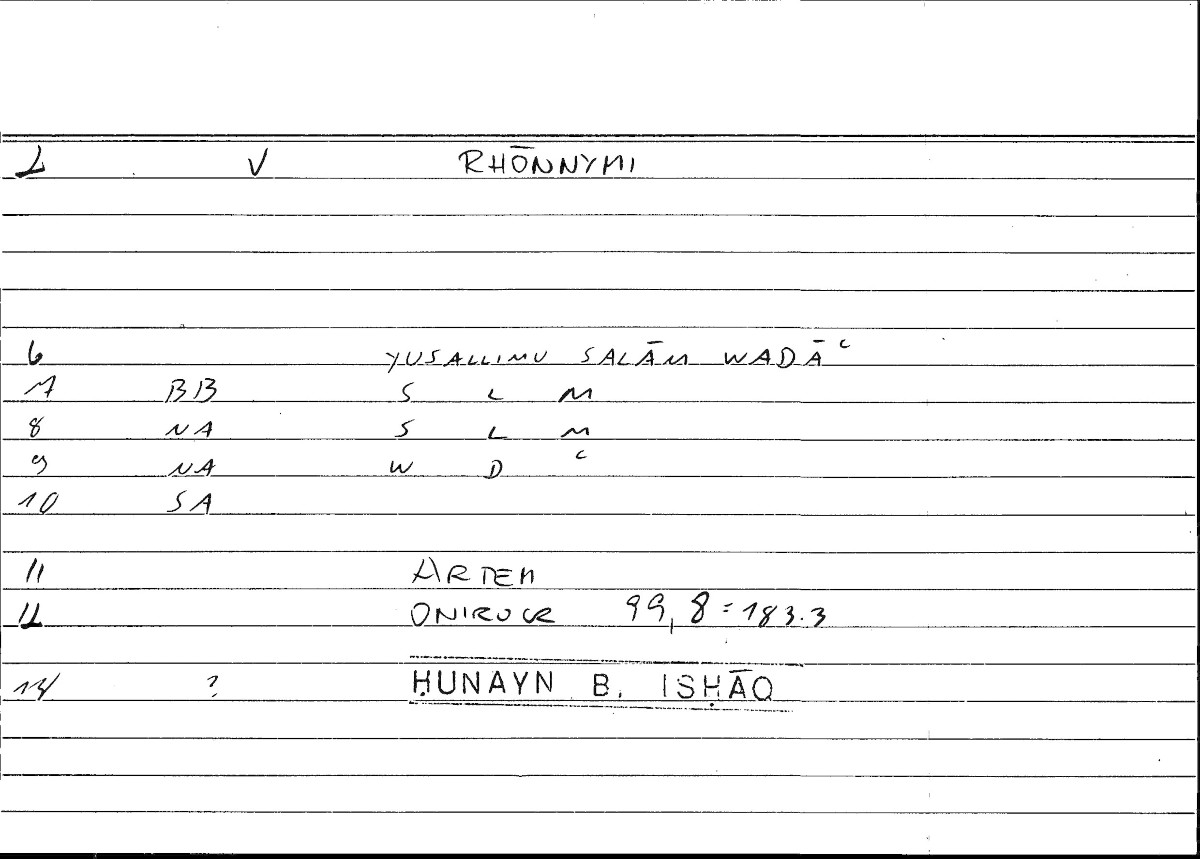 2 V RHŌNNYMI
6 YUSALLIMU SALĀM WADĀʿ
7 BB S L M
8 NA S L M
9 NA W D ʿ
10 SA
11 ARTEM
12 ONIROCR 99,8 = 183.3
14 ? ḤUNAYN B. ISḤĀQ